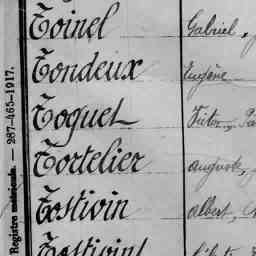 Toinel Gabriel,
Tondeux Eugène
Toquet Victor,
Tortelier auguste,
Tostivin albert,
Tostivint
Registre matricule. — 287-465-1917.